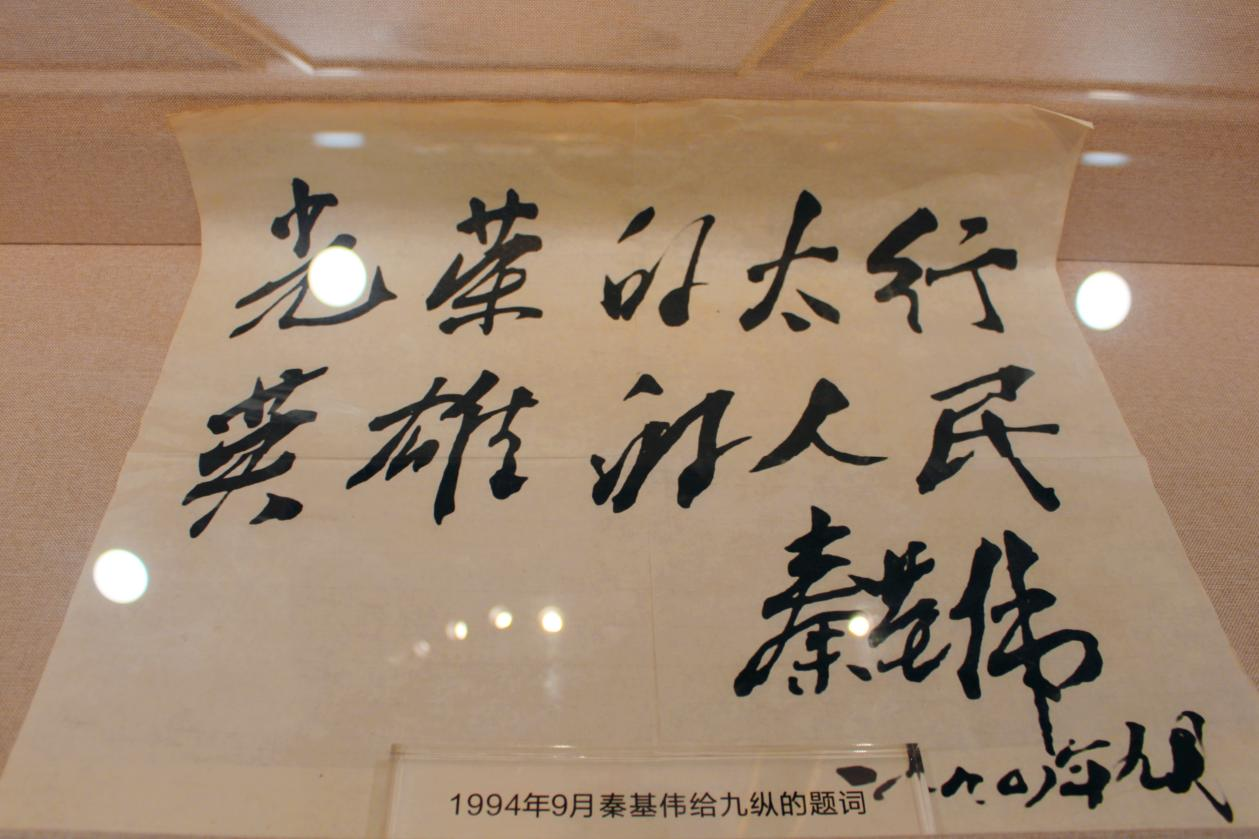 光荣的太行
英雄的人民
秦基伟
年九月
1994年9月秦基伟给九纵的题词